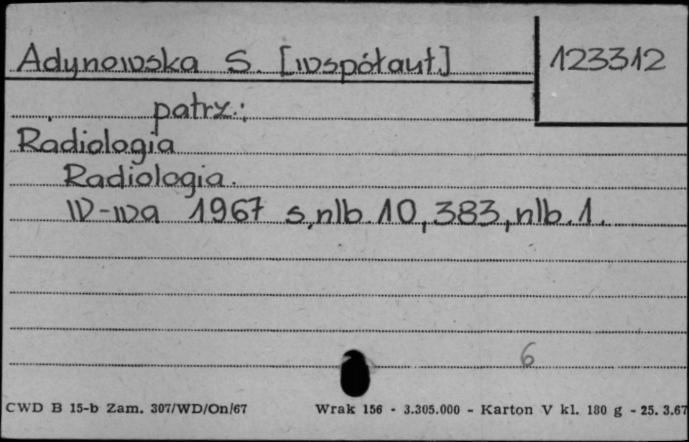 Adynowska S. [współaut.] 123312
patrz.:
Radiologia
Radiologia.
W-wa 1967 s, nlb. 10, 383, nlb. 1.
6
CWD B 15-b Zam. 307/WD/On/67 Wrak 156 - 3.305.000 - Karton V kl. 180 g - 25. 3.67